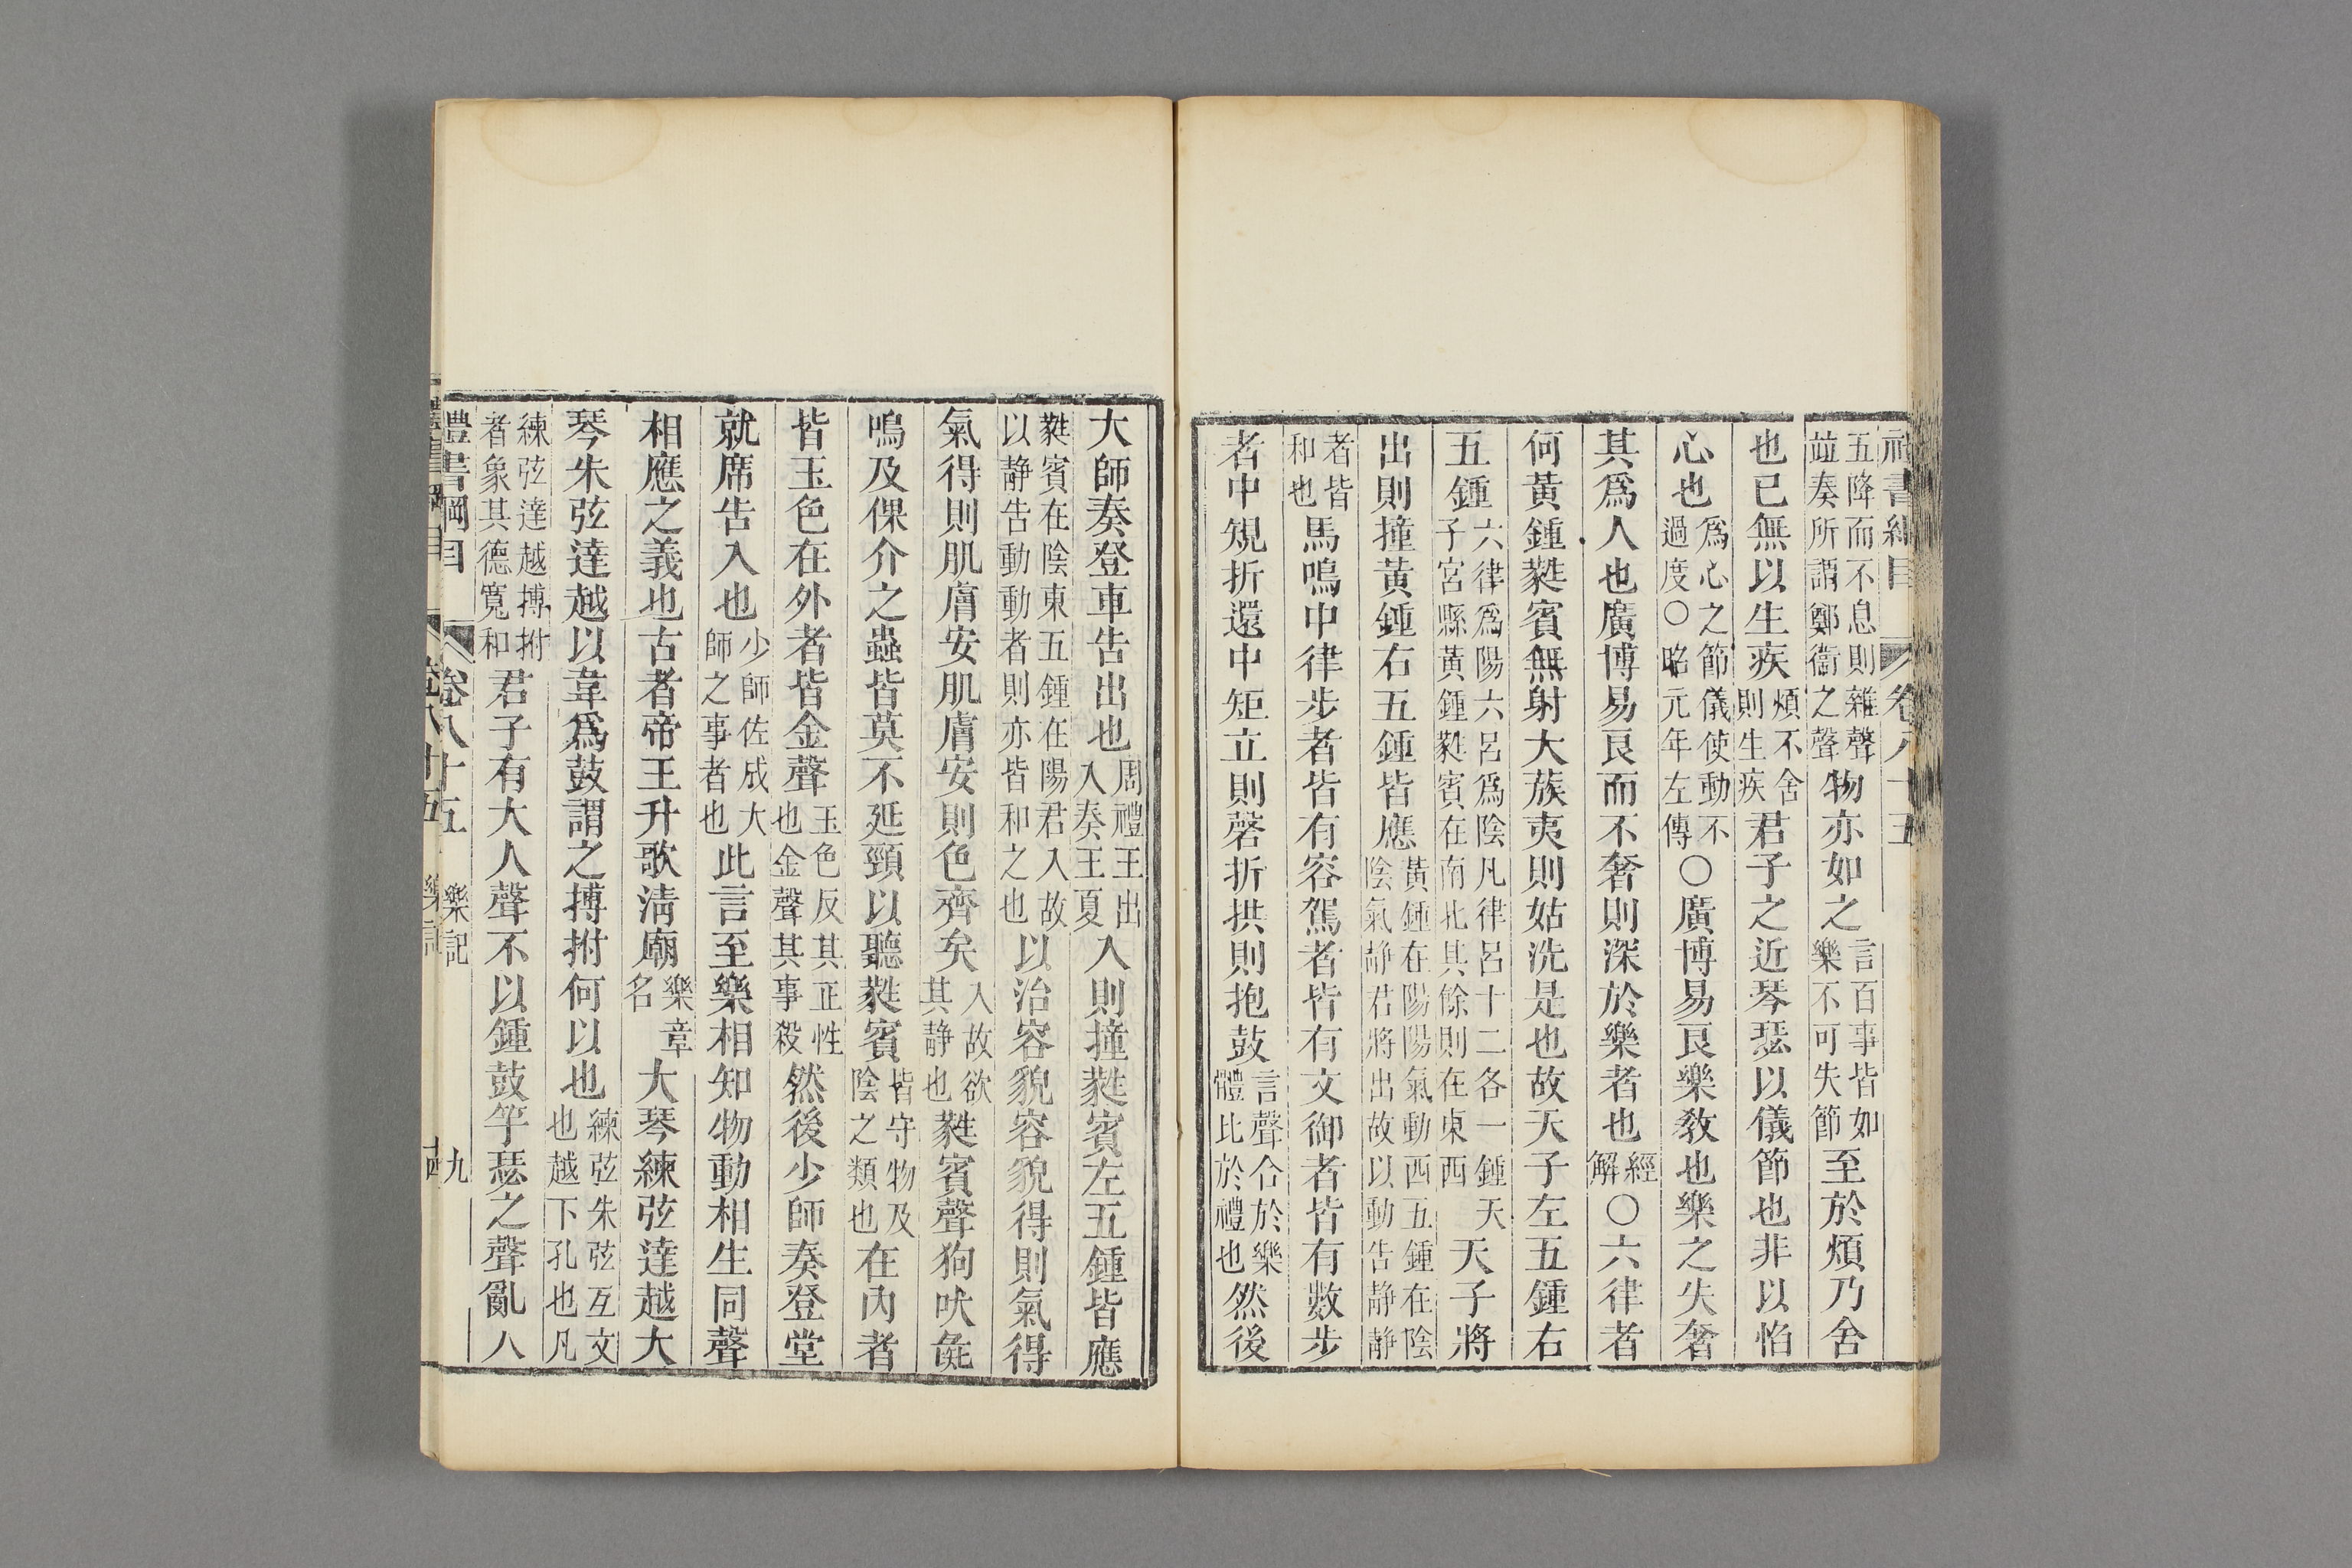 五降而不息則雜聲
竝奏所謂鄭衞之聲
物亦如之
言百事皆如
樂不可失節
至於煩乃舍
也已無以生疾
煩不舍
則生疾
君子之近琴瑟以儀節也非以慆
心也
爲心之節儀使動不
過度○昭元年左傳
○廣博易良樂教也樂之失奢
其爲人也廣博易良而不奢則深於樂者也
經
解
○六律者
何黃鍾蕤賓無射大蔟夷則姑洗是也故天子左五鍾右
五鍾
六律爲陽六呂爲陰凡律呂十二各一鍾天
子宮縣黃鍾蕤賓在南北其餘則在東西
天子將
出則撞黃鍾右五鍾皆應
黃鍾在陽陽氣動西五鍾在陰
陰氣靜君將出故以動告靜靜
者皆
和也
馬鳴中律步者皆有容駕者皆有文御者皆有數步
者中規折還中矩立則磬折拱則抱鼓
言聲合於樂
體比於禮也
然後
大師奏登車告出也
周禮王出
入奏王夏
入則撞蕤賓左五鍾皆應
蕤賓在陰東五鍾在陽君入故
以靜告動動者則亦皆和之也
以治容貌容貌得則氣得
氣得則肌膚安肌膚安則色齊矣
入故欲
其靜也
蕤賓聲狗吠彘
鳴及倮介之蟲皆莫不延頸以聽蕤賓
皆守物及
陰之類也
在內者
皆玉色在外者皆金聲
玉色反其正性
也金聲其事殺
然後少師奏登堂
就席告入也
少師佐成大
師之事者也
此言至樂相知物動相生同聲
相應之義也古者帝王升歌淸廟
樂章
名
大琴練弦達越大
琴朱弦達越以韋爲鼓謂之搏拊何以也
練弦朱弦互文
也越下孔也凡
練弦達越搏拊
者象其德寬和
君子有大人聲不以鍾鼓竽瑟之聲亂八
禮書綱目 卷八十五 樂記 九